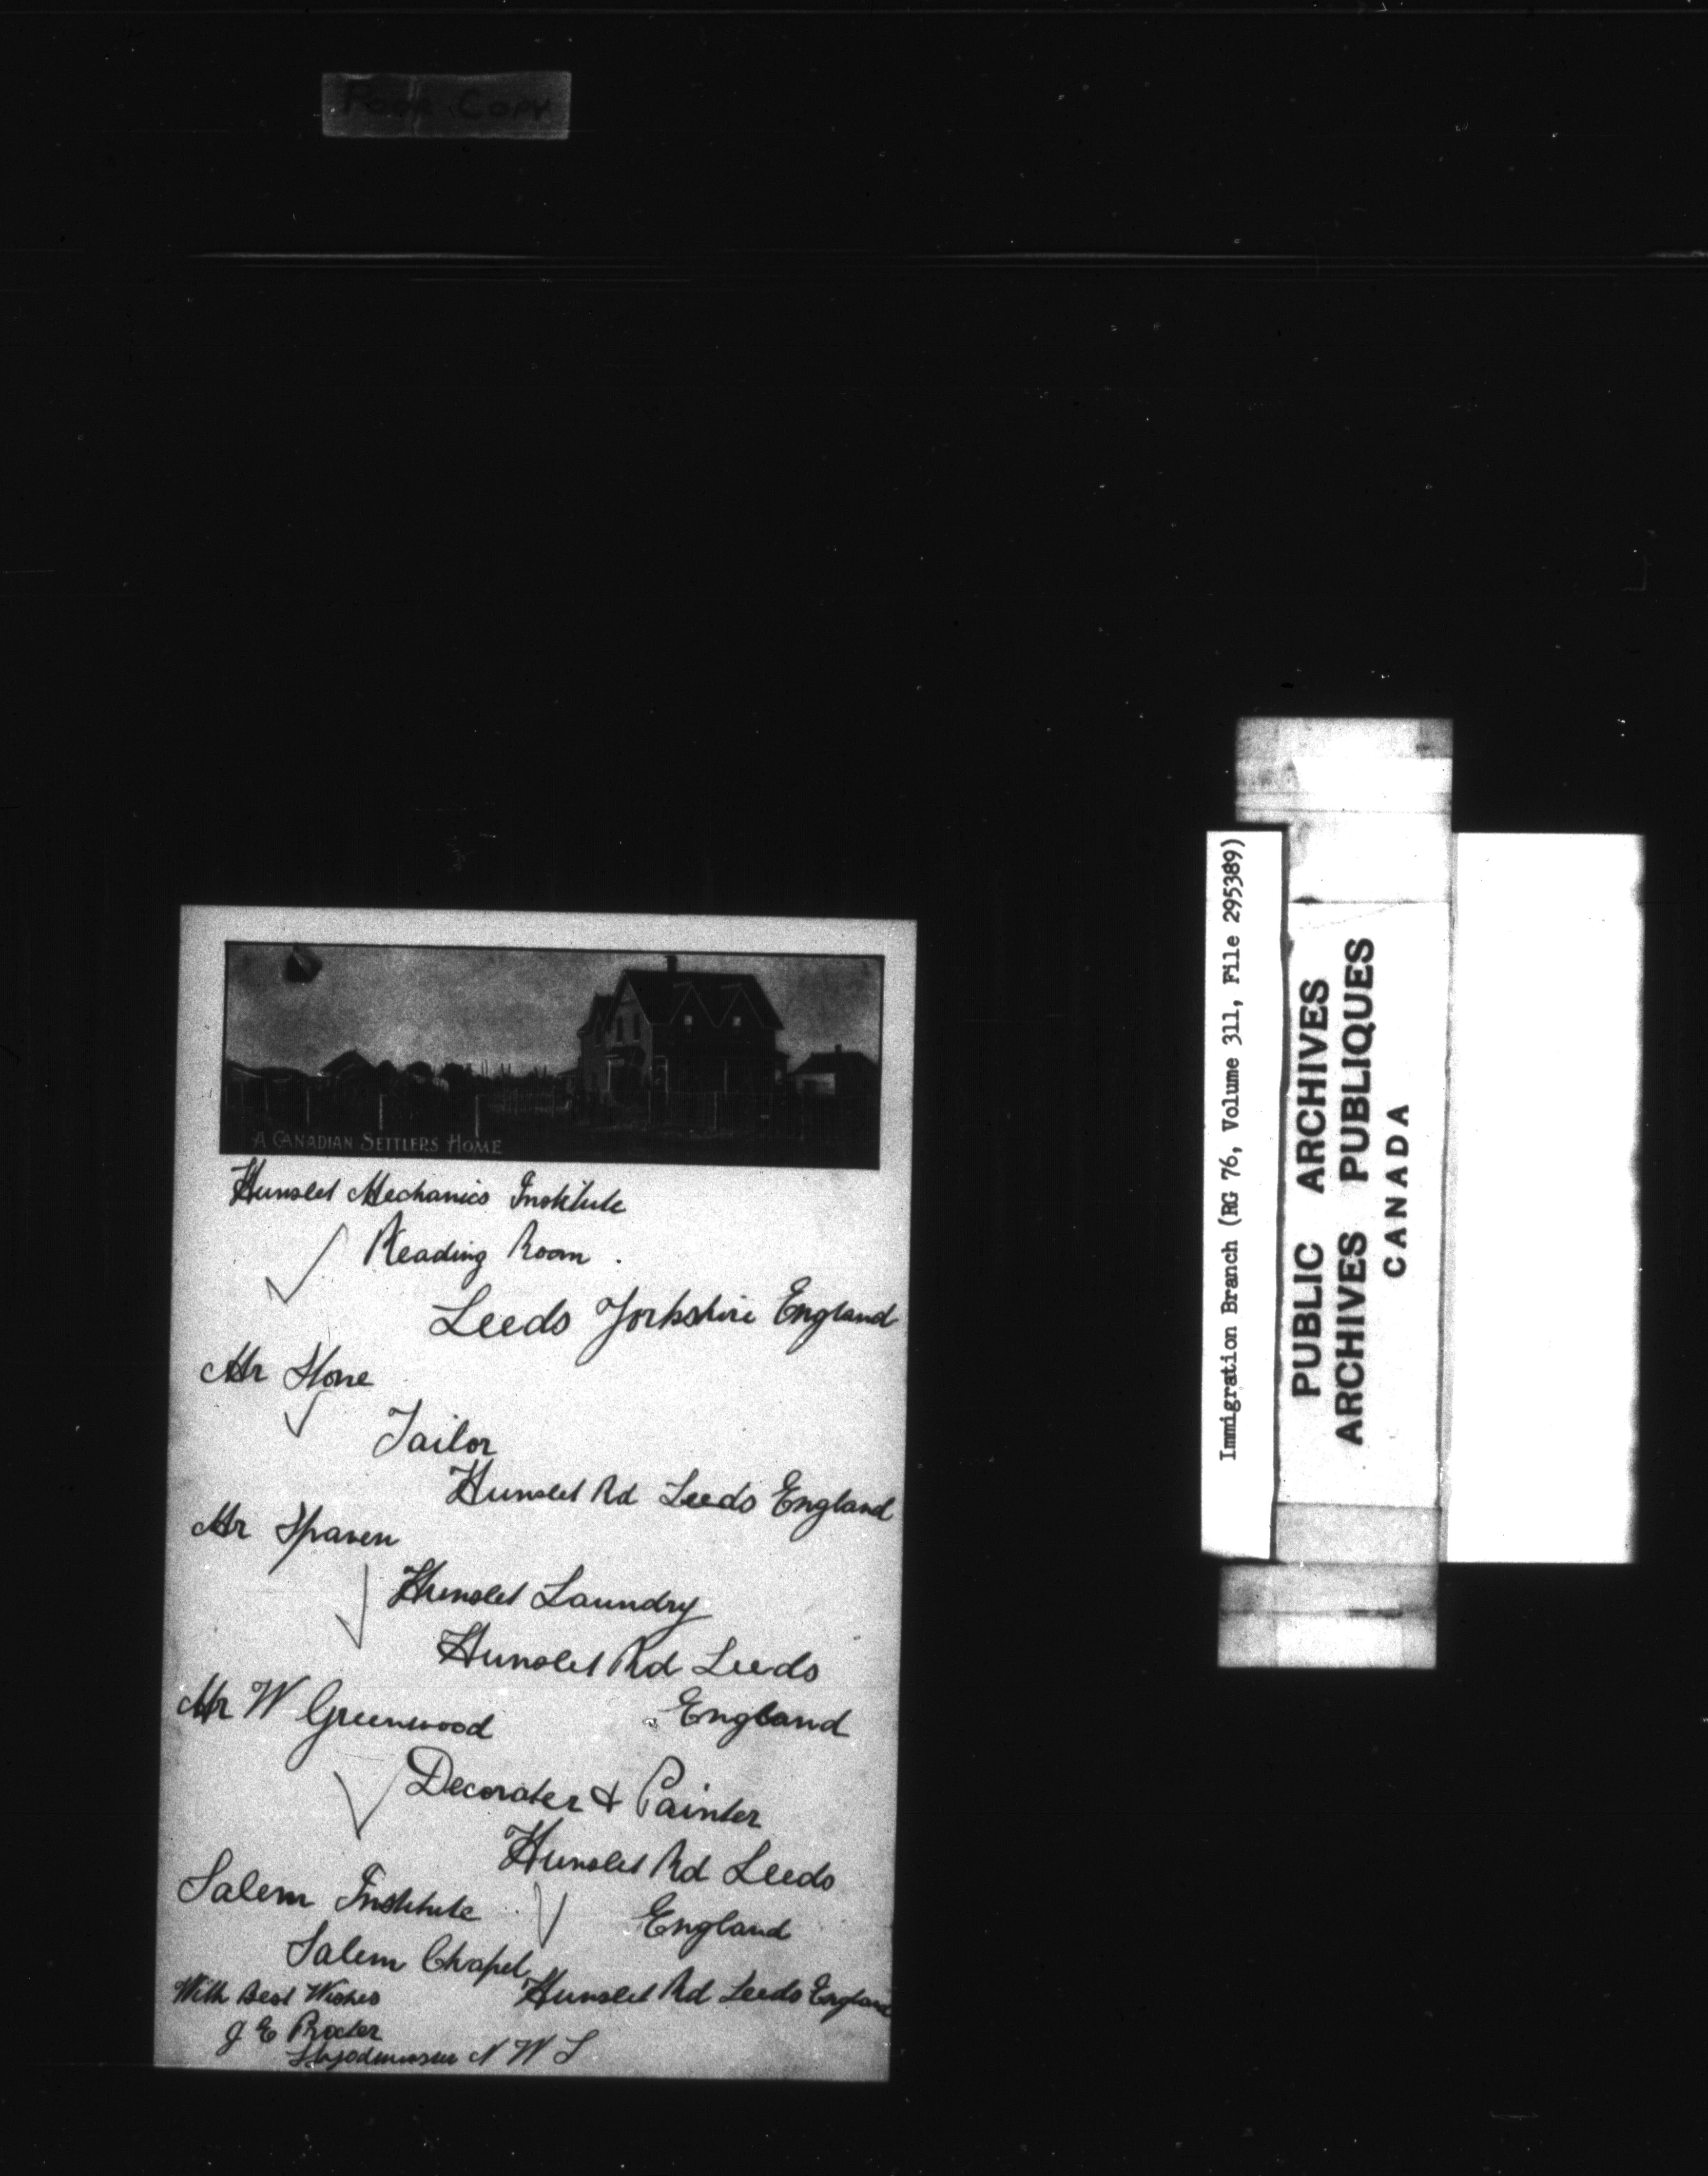 Poor Copy
A CANADIAN SETTLERS HOME
Hunslet Mechanics Institute
Reading Room .
Leeds Yorkshire England
Mr Stone
Tailor
Hunslet Rd Leeds England
Mr Spaven
Hunslet Laundry
Hunslet Rd Leeds
England
Mr W Greenwood
Decorater & Painter
Hunslet Rd Leeds
England
Salem Institute
Salem Chapel
Hunslet Rd Leeds England
With Best Wishes
J E Procter
N W T
Immigration Branch (RG 76, Volume 311, File 295389)
PUBLIC ARCHIVES
ARCHIVES PUBLIQUES
CANADA